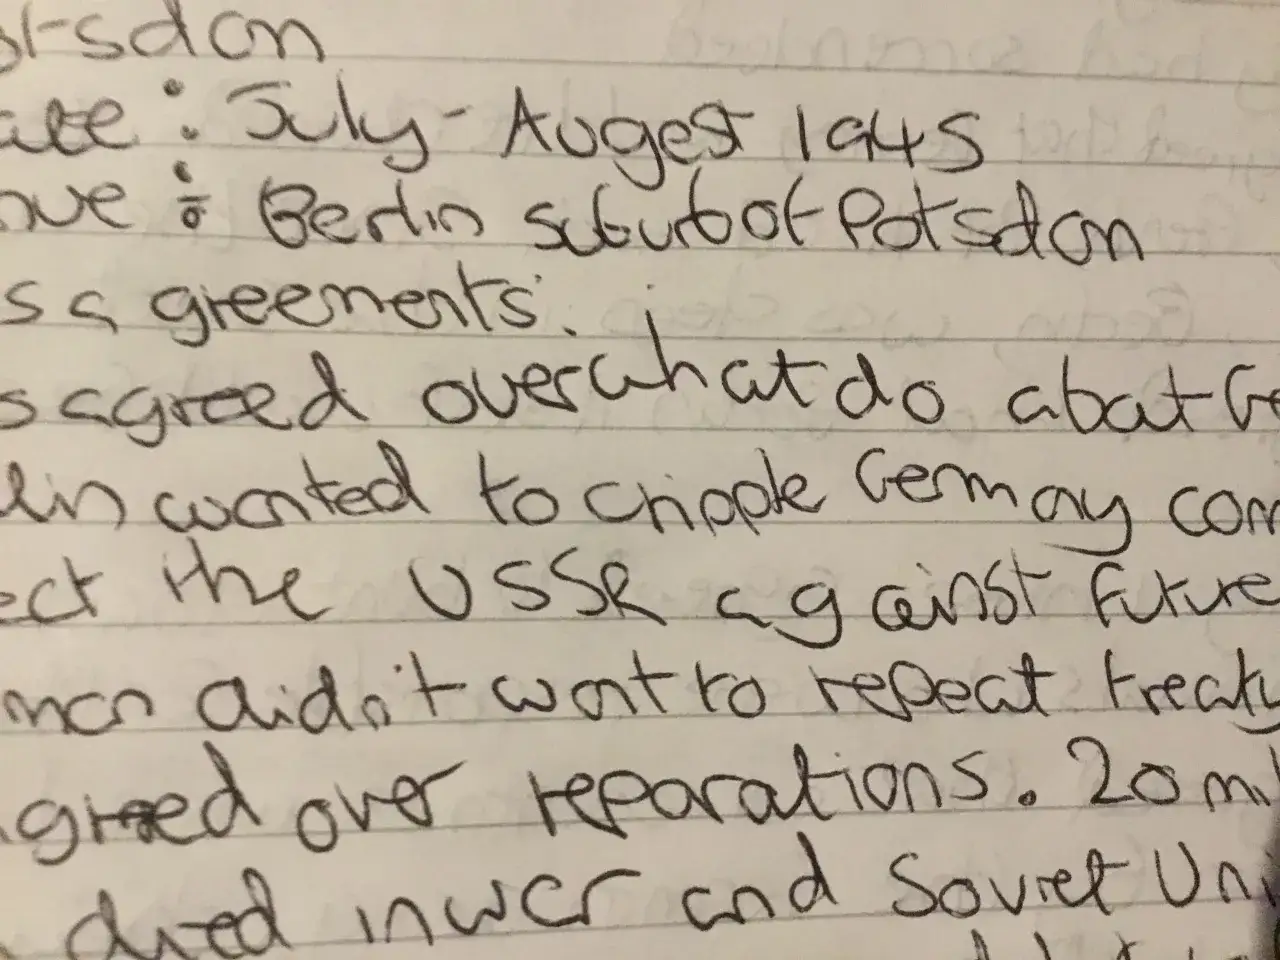 otsdan
ate : July - Augest 1945
nue : Berlin suburb of Potsdan
s agreements.
s agreed over what do abat Ge
lin wanted to cripple Germay com
ect the USSR against future
man didn't want to repeat treaty
agreed over reparations. 20 mil
died in war and Soviet Uni